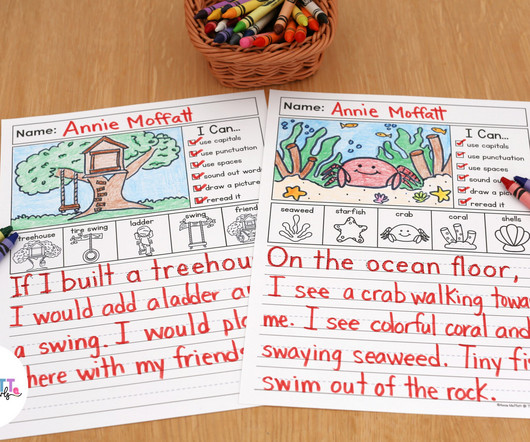 Name: Annie Moffatt
I Can...
use capitals
use punctuation
use spaces
sound out words
draw a picture
reread it
treehouse
tire swing
ladder
swing
friend
If I built a treehou
I would add a ladder a
a swing. I would pl
here with my friends
Name: Annie Moffatt
I Can...
use capitals
use punctuation
use spaces
sound ou
draw a pic
reread it
seaweed
starfish
crab
coral
shells
On the ocean floor,
I see a crab walking towa
me. I see colorful coral and
swaying seaweed. Tiny fis
swim out of the rock.